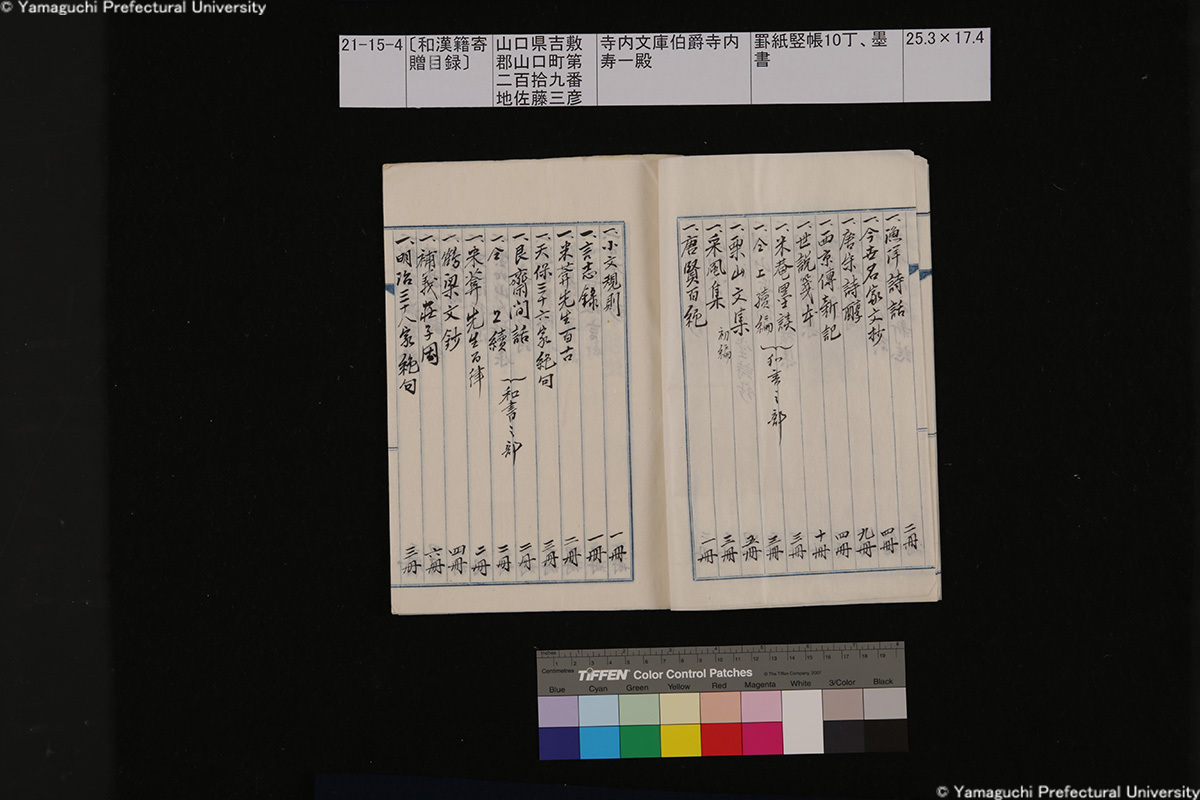 © Yamaguchi Prefectural University
21-15-4
〔和漢籍寄
贈目録〕
山口県吉敷
郡山口町第
二百拾九番
地佐藤三彦
寺内文庫伯爵寺内
寿一殿
罫紙竪帳10丁、墨
書
25.3×17.4
一、漁洋詩話 二冊
一、今世名家文抄 四冊
一、唐宋詩醇 九冊
一、西京傳新記 四冊
一、世説箋本 十冊
一、米菴墨談 三冊
一、仝上續編 三冊
和書之部
一、栗山文集 五冊
一、采風集 初編 三冊
一、唐賢百絶 一冊
一、小文規則 一冊
一、言志録 一冊
一、米葊先生百古 二冊
一、天保三十六家絶句 三冊
一、艮齋间話 二冊
一、仝 續 二冊
和書之部
一、宋葊先生百律 二冊
一、鶴梁文鈔 四冊
一、補義荘子因 六冊
一、明治三十八家絶句 三冊
Centimetres
TIFFEN Color Control Patches
© The Tiffen Company, 2007
Blue Cyan Green Yellow Red Magenta White 3/Color Black
© Yamaguchi Prefectural University